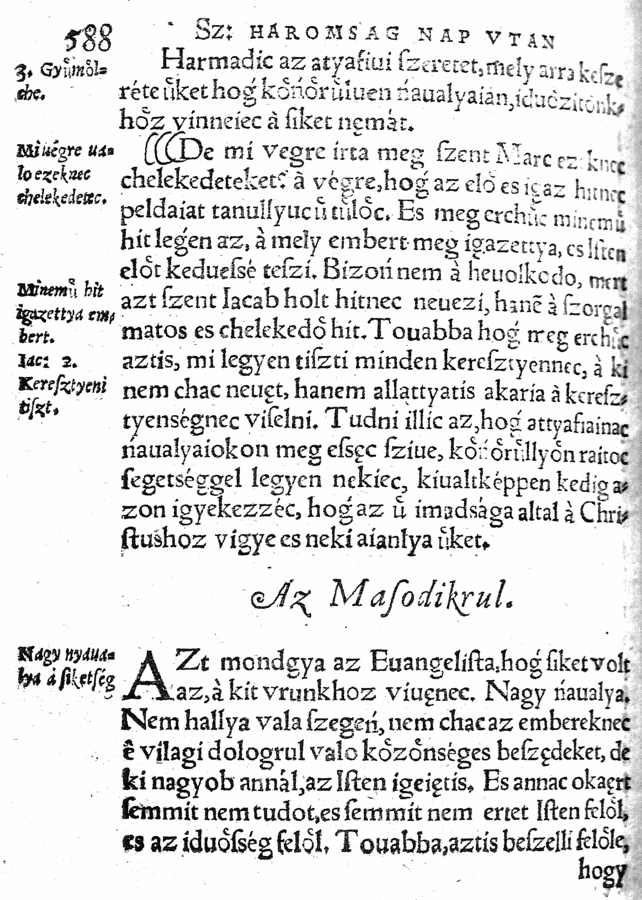 588 Sz: HAROMSAG NAP VTAN
3. Gyůmǒl=
che.
Harmadic az atyafiui ſzeretet, mely arra keſze
réte ůket hoǵ kǒńǒrůluen ńaualyaian, iduǒzitǒnk=
hǒz vinneiec à ſiket nęmàt.
Miuégre ua=
lo ezeknec
chelekedetec.
(((De mi vegre irta meg ſzent Marc ez
chelekedeteket? à végre, hoǵ az elǒ es igaz hitnec
peldaiat tanullyuc ů tůlǒc. Es meg erchůc minemů
hit legén az, à mely embert meg igazettya, es Iſten
elǒt kedueſsé teſzi. Bizoń nem à heuolkodo, mert
Minemů hit
igazettya em=
bert.
Iac: 2.
Kereſztyeni
tiſzt.
azt ſzent Iacab holt hitnec neuezi, hanē à ſzorgal
matos es chelekedǒ hit. Touabba hoǵ meg erchůc
aztis, mi legyen tiſzti minden kereſztyennec, à ki
nem chac neuęt, hanem allattyatis akaria à kereſz=
tyenségnec viſelni. Tudni illic az, hoǵ attyafiainac
ńaualyaiokon meg eſsęc ſziue, kǒńǒrůllyǒn raitoc
ſegetséggel legyen nekiec, kiualtképpen kedig a=
zon igyekezzéc, hoǵ az ů imadsága altal à Chri=
ſtushoz vigye es neki aianlya ůket.
Az Maſodikrul.
Nagy nyaua=
lya à ſiketſég
AZt mondgya az Euangeliſta, hoǵ ſiket volt
az, à kit vrunkhoz viuęnec. Nagy ńaualya.
Nem hallya vala ſzegeń, nem chac az embereknec
ê vilagi dologrul valo kǒzǒnséges beſzędeket, de
ki nagyob annál, az Iſten igeiętis. Es annac okaęrt
ſemmit nem tudot, es ſemmit nem ertet Iſten felǒl,
es az iduǒſség felǒl. Touabba, aztis beſzelli felǒle,
hogy